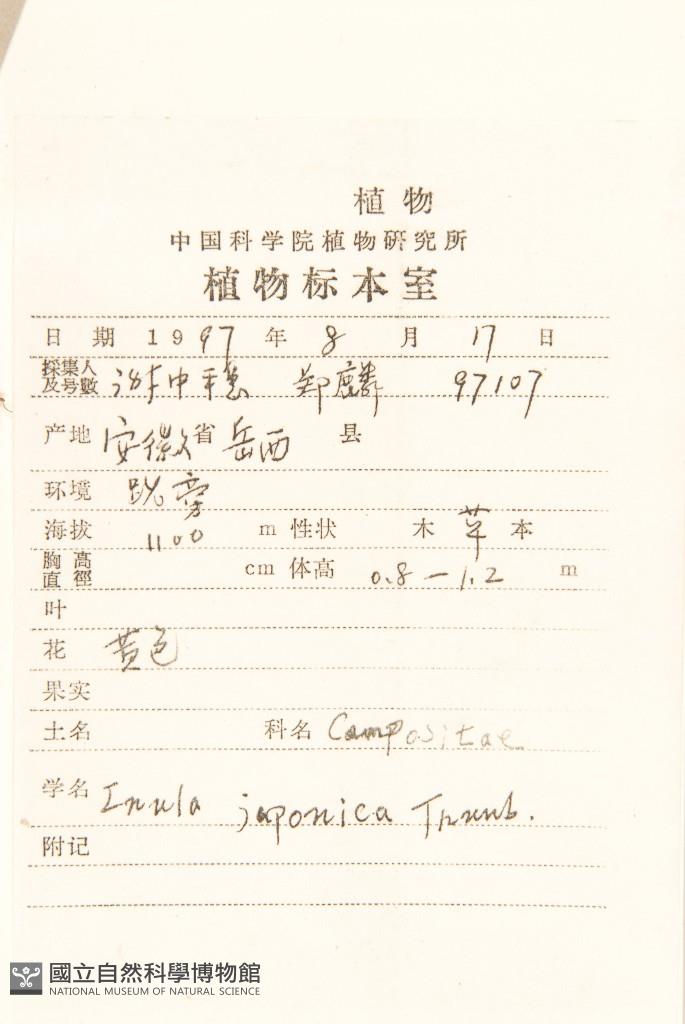 植物
中国科学院植物研究所
植物标本室
日 期 1997 年 8 月 17 日
採集人及号数 谢中稳 郑麟 97107
产地 安徽 省 岳西 县
环境 路旁
海拔 1100 m 性状 木 草 本
胸高直徑 cm 体高 0.8-1.2 m
叶
花 黄色
果实
土名 科名 Compositae
学名 Inula japonica Thunb.
附记
國立自然科學博物館
NATIONAL MUSEUM OF NATURAL SCIENCE